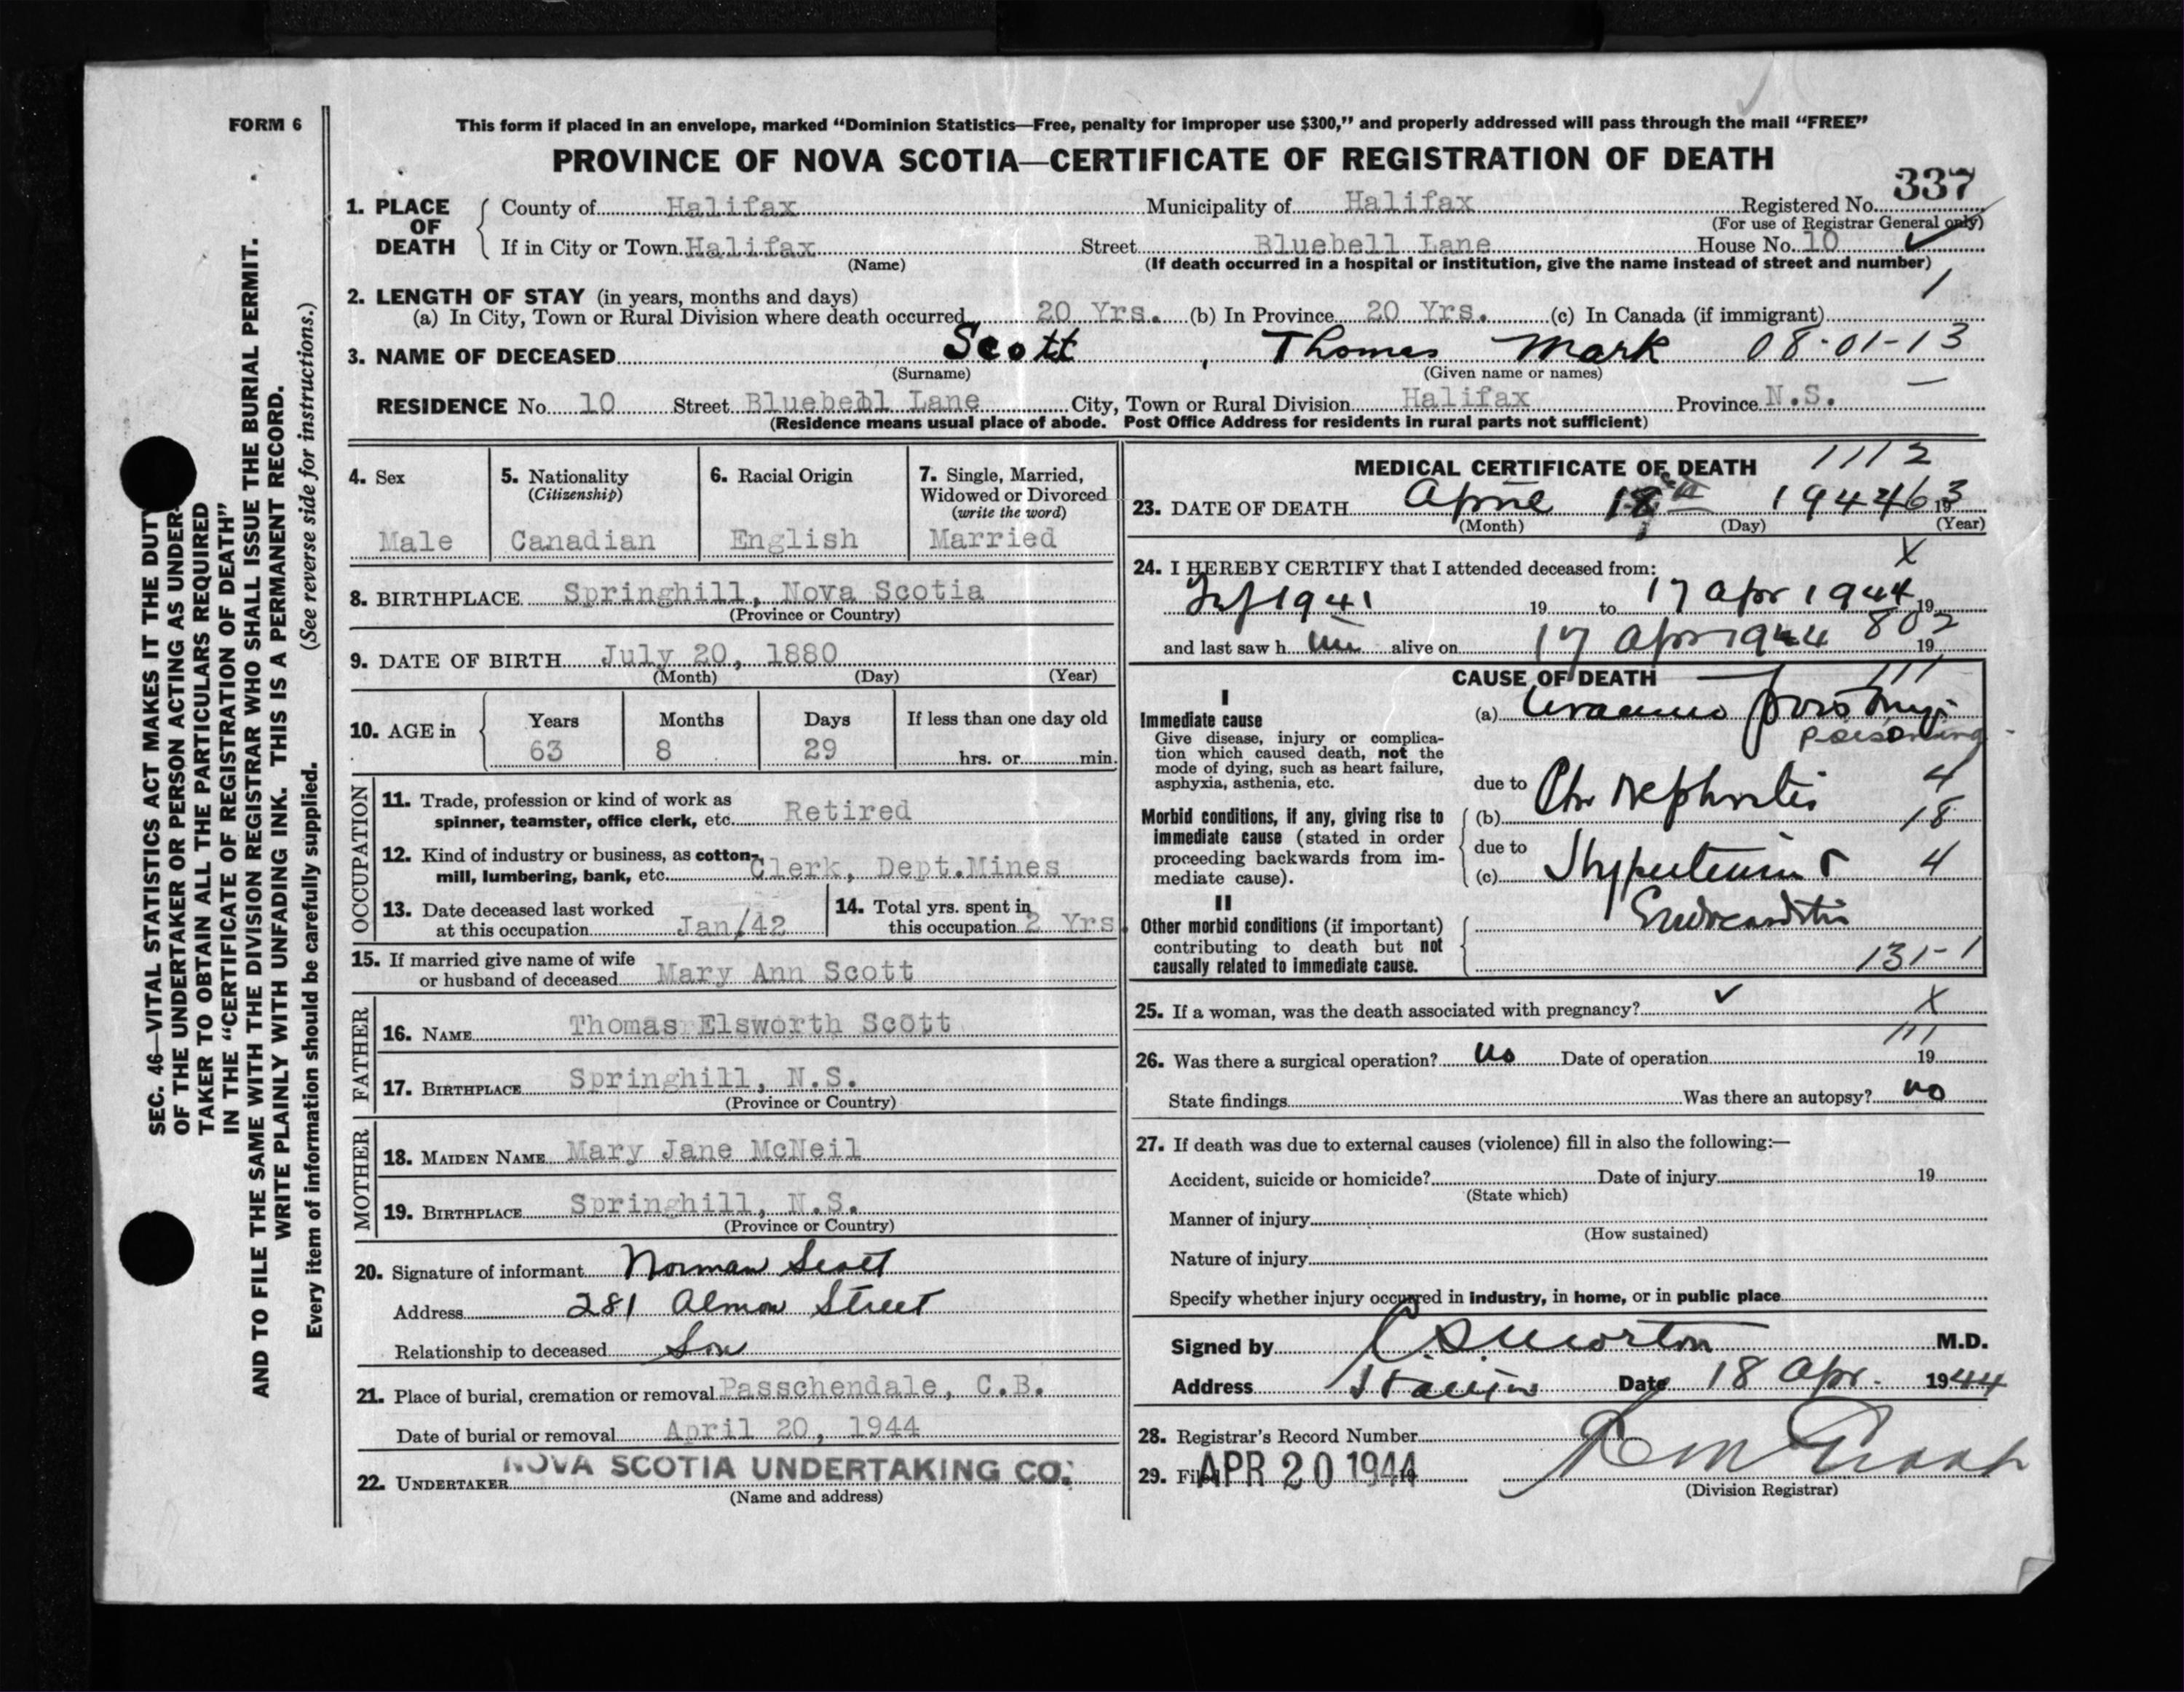 FORM 6
This form if placed in an envelope, marked “Dominion Statistics—Free, penalty for improper use $300,” and properly addressed will pass through the mail “FREE”
PROVINCE OF NOVA SCOTIA—CERTIFICATE OF REGISTRATION OF DEATH
337
1. PLACE OF DEATH
County of Halifax Municipality of Halifax Registered No.
(For use of Registrar General only)
If in City or Town Halifax Street Bluebell Lane House No. 10
(Name)
(If death occurred in a hospital or institution, give the name instead of street and number)
2. LENGTH OF STAY (in years, months and days)
1
(a) In City, Town or Rural Division where death occurred 20 Yrs. (b) In Province 20 Yrs. (c) In Canada (if immigrant)
3. NAME OF DECEASED Scott, Thomas Mark 08-01-13
(Surname) (Given name or names)
RESIDENCE No. 10 Street Bluebell Lane City, Town or Rural Division Halifax Province N.S.
(Residence means usual place of abode. Post Office Address for residents in rural parts not sufficient)
SEC. 46—VITAL STATISTICS ACT MAKES IT THE DUTY
OF THE UNDERTAKER OR PERSON ACTING AS UNDER-
TAKER TO OBTAIN ALL THE PARTICULARS REQUIRED
IN THE “CERTIFICATE OF REGISTRATION OF DEATH”
AND TO FILE THE SAME WITH THE DIVISION REGISTRAR WHO SHALL ISSUE THE BURIAL PERMIT.
WRITE PLAINLY WITH UNFADING INK. THIS IS A PERMANENT RECORD.
Every item of information should be carefully supplied. (See reverse side for instructions.)
4. Sex
Male
5. Nationality
(Citizenship)
Canadian
6. Racial Origin
English
7. Single, Married,
Widowed or Divorced
(write the word)
Married
8. BIRTHPLACE Springhill, Nova Scotia
(Province or Country)
9. DATE OF BIRTH July 20, 1880
(Month) (Day) (Year)
10. AGE in Years Months Days If less than one day old
63 8 29 hrs. or min.
OCCUPATION
11. Trade, profession or kind of work as
spinner, teamster, office clerk, etc. Retired
12. Kind of industry or business, as cotton-
mill, lumbering, bank, etc. Clerk, Dept.Mines
13. Date deceased last worked
at this occupation Jan/42
14. Total yrs. spent in
this occupation 2 Yrs.
15. If married give name of wife
or husband of deceased Mary Ann Scott
FATHER
16. NAME Thomas Elsworth Scott
17. BIRTHPLACE Springhill, N.S.
(Province or Country)
MOTHER
18. MAIDEN NAME Mary Jane McNeil
19. BIRTHPLACE Springhill, N.S.
(Province or Country)
20. Signature of informant Norman Scott
Address 281 Almon Street
Relationship to deceased Son
21. Place of burial, cremation or removal Passchendale, C.B.
Date of burial or removal April 20, 1944
22. UNDERTAKER NOVA SCOTIA UNDERTAKING CO.
(Name and address)
MEDICAL CERTIFICATE OF DEATH 1112
23. DATE OF DEATH April 18th 1944 19 63
(Month) (Day) (Year)
24. I HEREBY CERTIFY that I attended deceased from: X
1941 19 to 17 Apr 1944 19
and last saw h im alive on 17 Apr 1944 19 802
CAUSE OF DEATH 111
I
Immediate cause
Give disease, injury or complica-
tion which caused death, not the
mode of dying, such as heart failure,
asphyxia, asthenia, etc.
(a)
poisoning
due to
(b) Chr Nephritis 4
18
Morbid conditions, if any, giving rise to
immediate cause (stated in order
proceeding backwards from im-
mediate cause).
due to
(c) Hypertension 4
Endocarditis
II
Other morbid conditions (if important)
contributing to death but not
causally related to immediate cause.
131-1
25. If a woman, was the death associated with pregnancy? X
111
26. Was there a surgical operation? no Date of operation 19
State findings Was there an autopsy? no
27. If death was due to external causes (violence) fill in also the following:—
Accident, suicide or homicide? Date of injury 19
(State which)
Manner of injury
(How sustained)
Nature of injury
Specify whether injury occurred in industry, in home, or in public place
Signed by Morton M.D.
Address Halifax Date 18 Apr. 1944
28. Registrar's Record Number
29. Filed APR 20 1944
(Division Registrar)